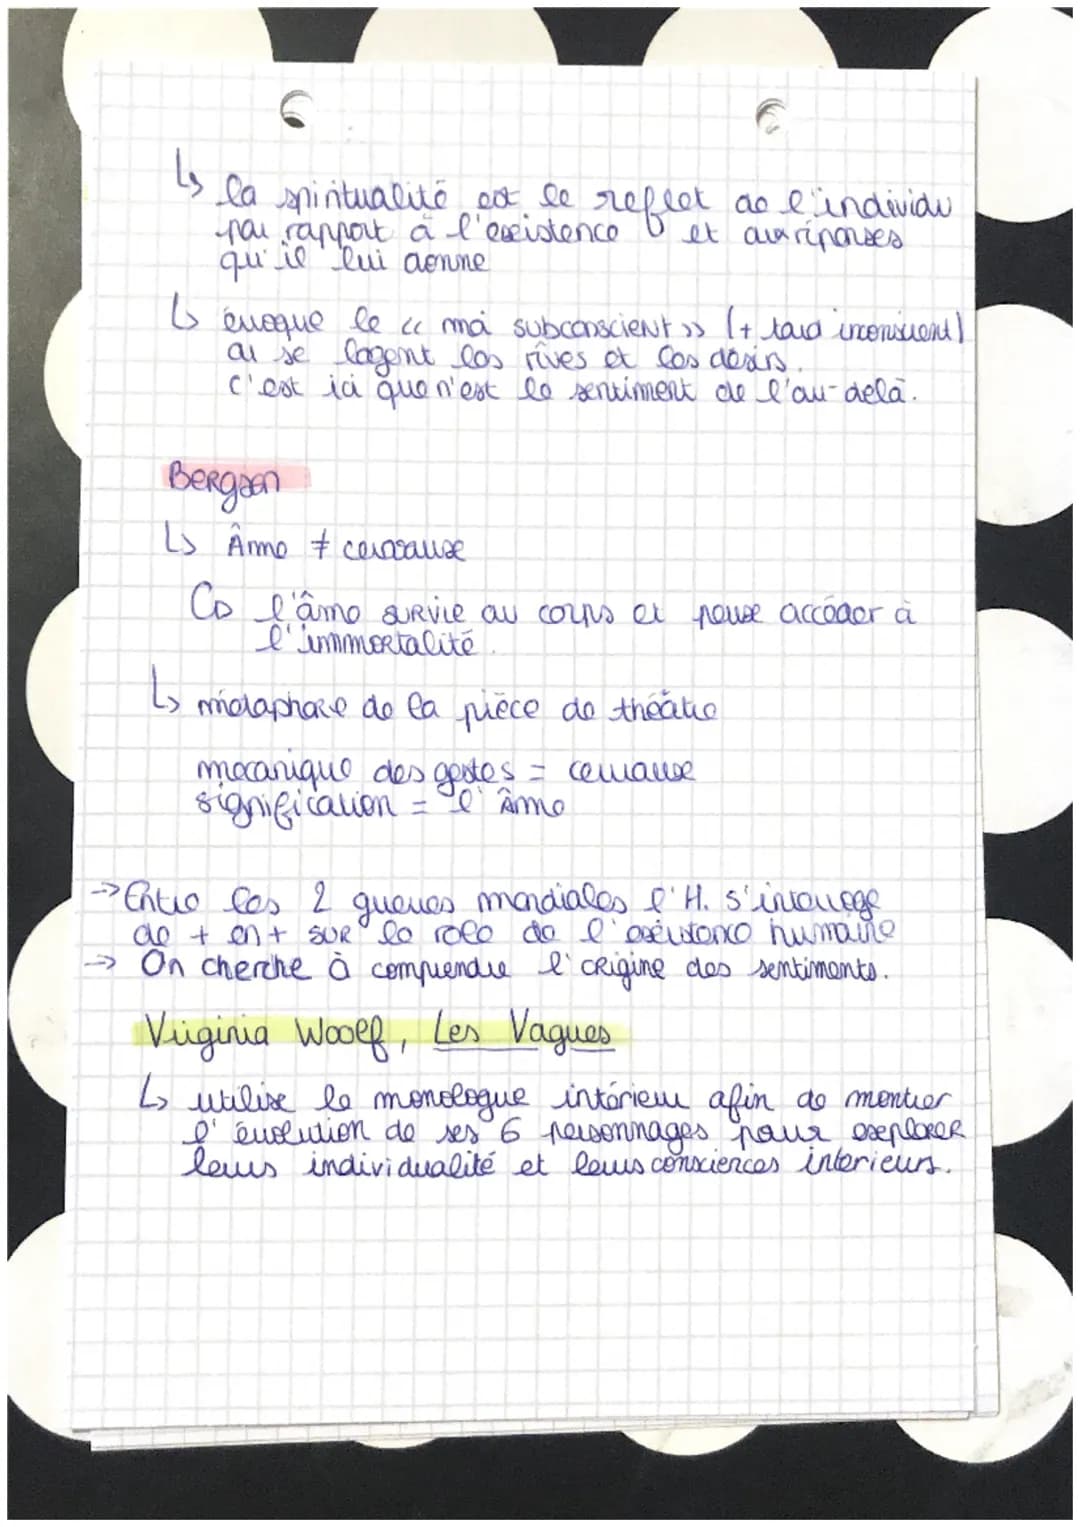 ↳ la spiritualité est le reflet de l'individu
par rapport à l'existence et aux réponses
qu'il lui donne
↳ évoque le « moi subconscient » (+ tard inconscient)
où se logent les rêves et les désirs.
c'est ici que n'est le sentiment de l'au-delà.
Bergson
↳ Âme ≠ cerveau
l'âme survie au corps et peuse accéder à
l'immortalité.
↳ métaphore de la pièce de théâtre
mécanique des gestes = cerveau
signification = l'Âme
→ Entre les 2 guerres mondiales l'H. s'interroge
de + en + sur le role de l'existence humaine
→ On cherche à comprendre l'origine des sentiments.
Virginia Woolf, Les Vagues
↳ utilise le monologue intérieur afin de montrer
l'évolution de ses 6 personnages pour explorer
leurs individualité et leurs consciences interieurs.